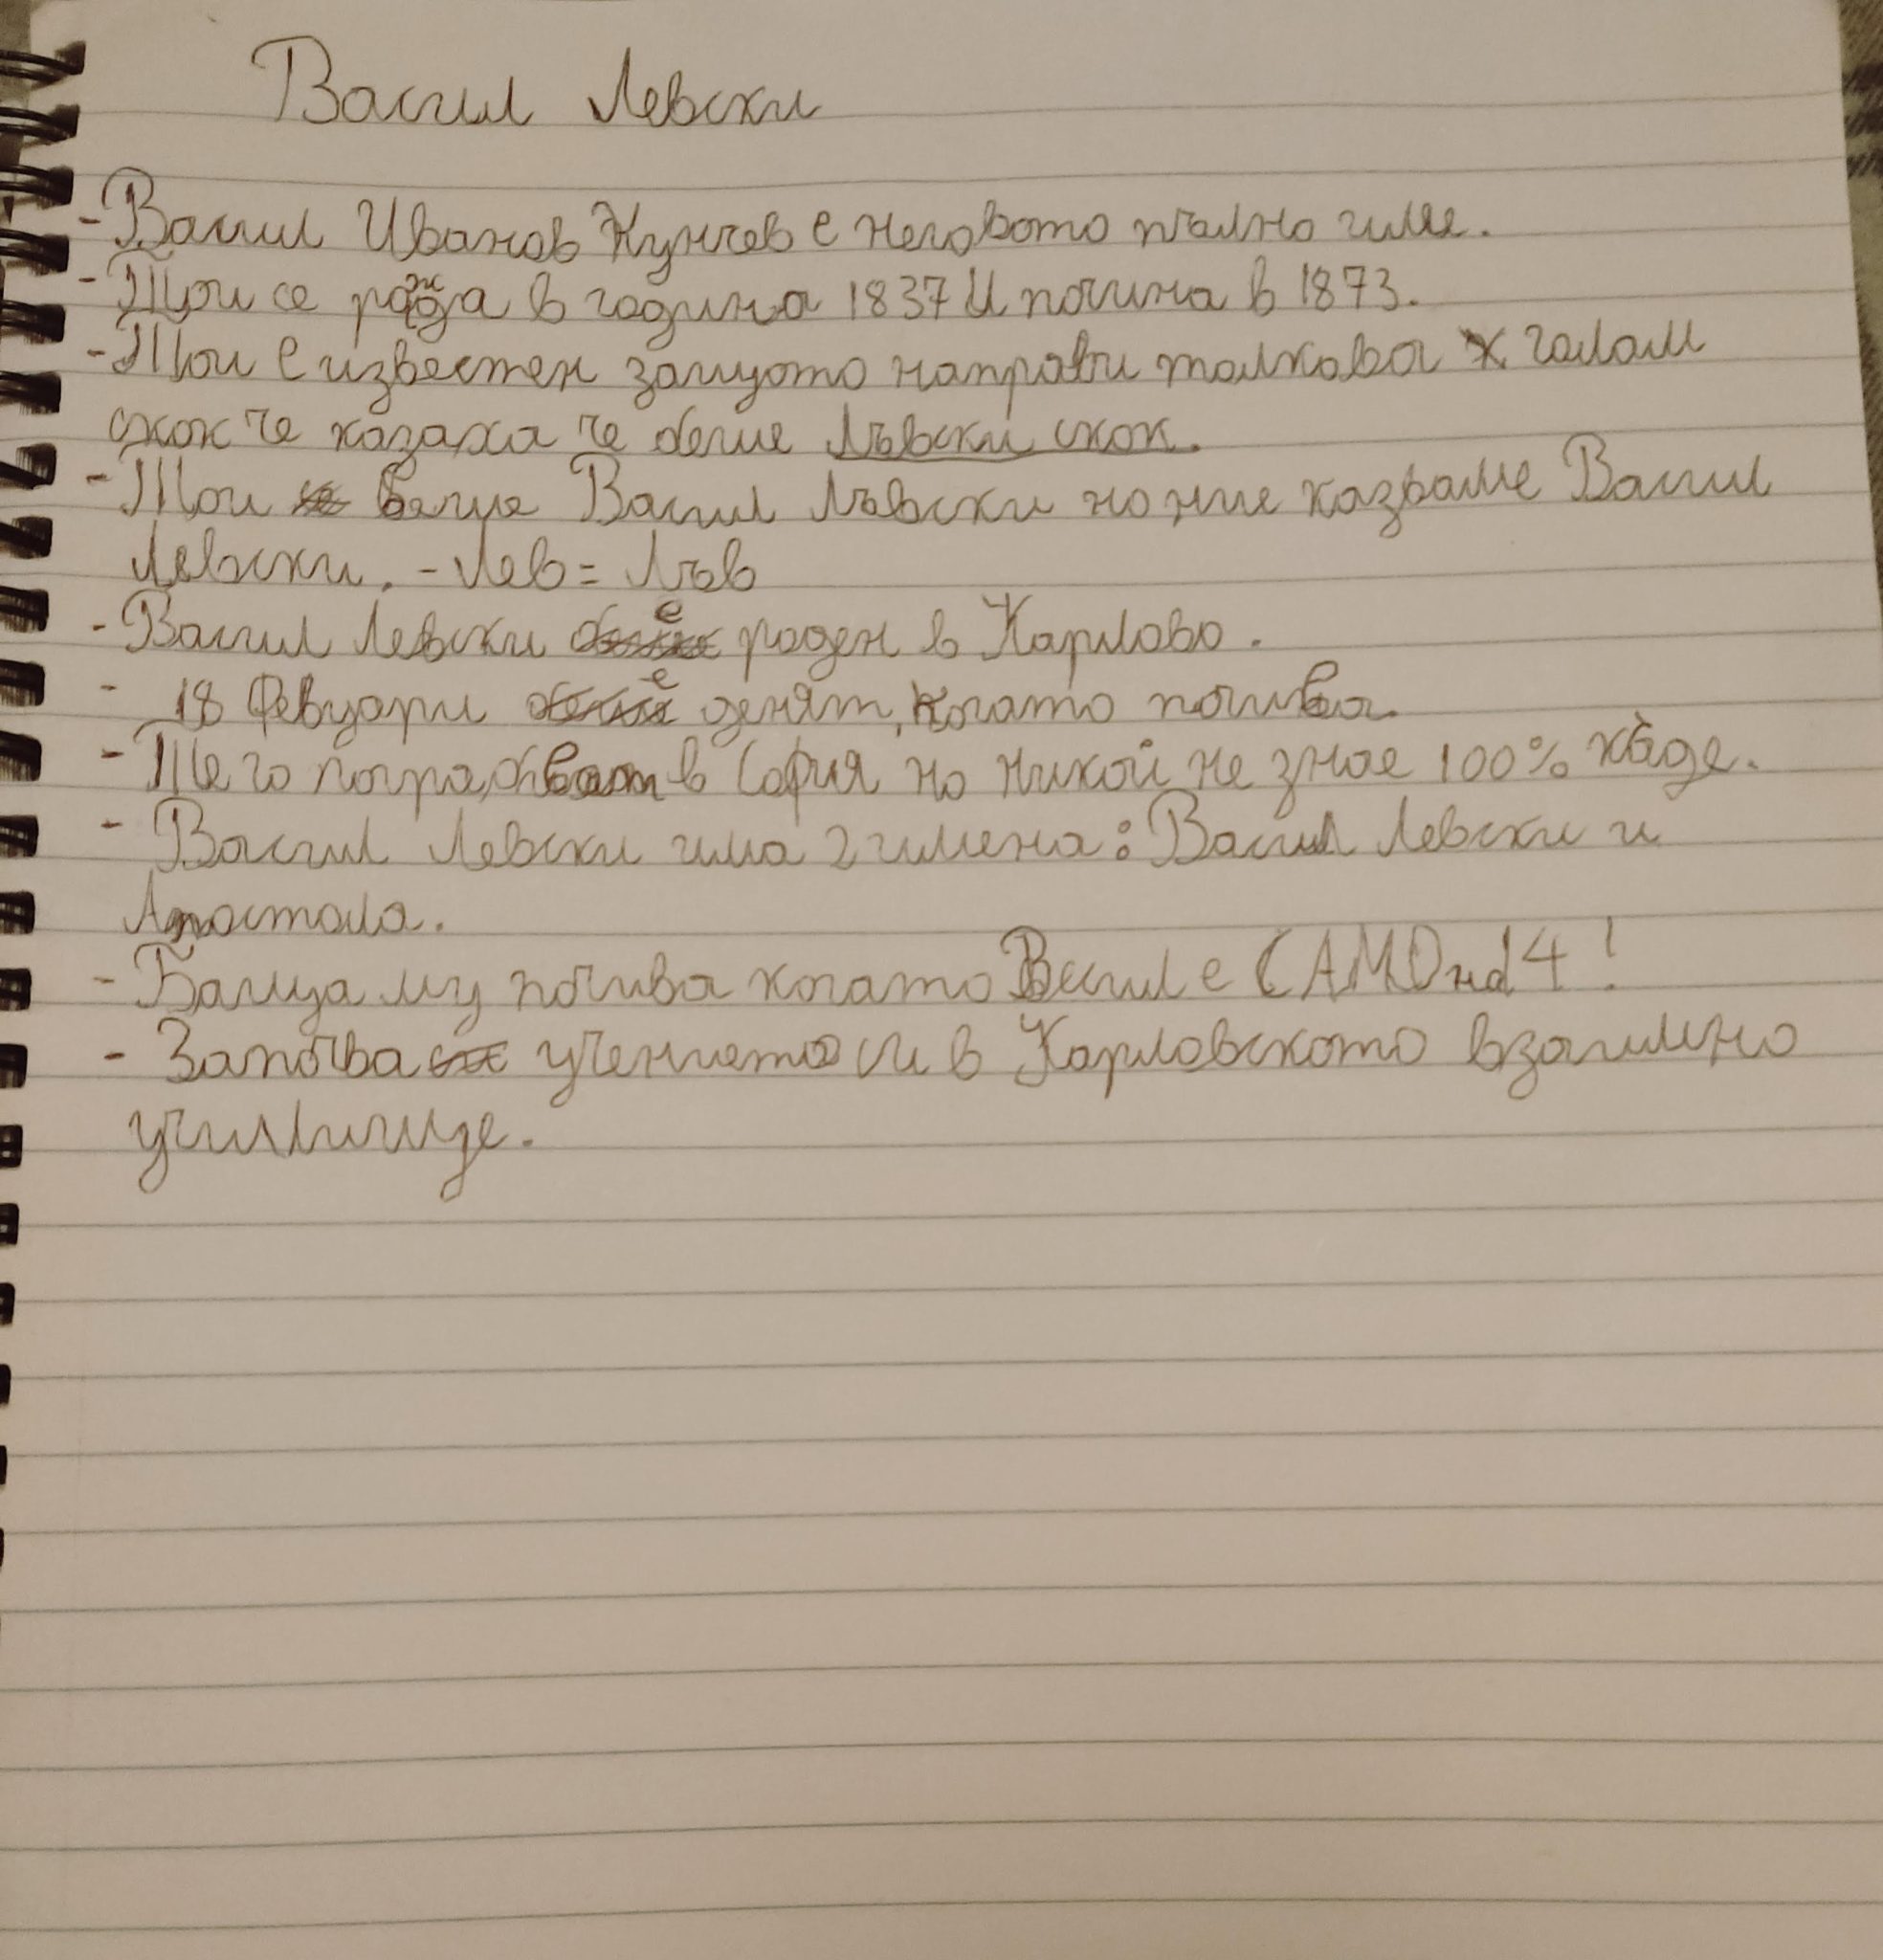 Васил Левски
- Васил Иванов Кунчев е неговото пълно име.
- Тои се ражда в година 1837 И почина в 1873.
- Тои е известен защото направи толкова голам
скок че казаха че беше Лъвски скок.
- Тои беше Васил Лъвски но ние казваме Васил
Левски. - Лев = Лъв
- Васил Левски е роден в Карлово.
- 18 Февуари е денят, когато почива.
- Те го погребват в София но никой не знае 100% къде.
- Васил Левски има 2 имена: Васил Левски и
Апостола.
- Баща му почива когато Васил е САМО на 14!
- Започва учението си в Карловското взаимно
училище.